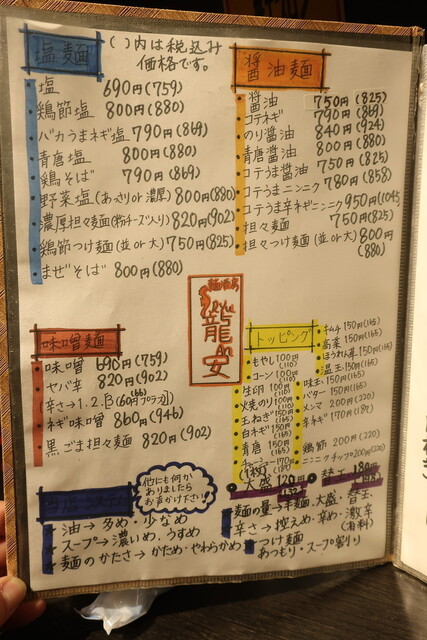 塩麺
( )内は税込み
価格です。
塩 690円(759)
鶏節塩 800円(880)
バカうまネギ塩 790円(869)
青唐塩 800円(880)
鶏そば 790円(869)
野菜塩(あっさりor濃厚) 800円(880)
濃厚担々麺(粉チーズ入り) 820円(902)
鶏節つけ麺(並or大) 750円(825)
まぜそば 800円(880)
醤油麺
醤油 750円(825)
コテネギ 790円(869)
のり醤油 840円(924)
青唐醤油 800円(880)
コテうま醤油 750円(825)
コテうまニンニク 780円(858)
コテうま辛ネギニンニク 950円(1045)
担々麺 750円(825)
担々つけ麺(並or大) 800円
(880)
龍安
味噌麺
味噌 690円(759)
ヤバ辛 820円(902)
辛さ→1.2.3(60円プラス)
(66)
ネギ味噌 860円(946)
黒ごま担々麺 820円(902)
トッピング
もやし 100円
(110)
コーン 100円
(110)
生卵 100円
(110)
焼のり 100円
(110)
玉ねぎ 150円
(165)
白ネギ 150円
(165)
青唐 150円
(165)
チャーシュー 170円
(187)
キムチ 150円(165)
高菜 150円(165)
ほうれん草 150円(165)
温玉 150円(165)
味玉 150円(165)
バター 150円(165)
メンマ 200円(220)
辛ネギ 170円(187)
鶏節 200円(220)
ニンニクチップ 200円(220)
大盛 120円
替玉 180円
他にも何か
ありましたら
お声がけ下さい!
油→多め・少なめ
スープ→濃いめ、うすめ
麺のかたさ→かため・やわらかめ
麺の量→半麺、大盛・替玉
辛さ→控えめ・辛め・激辛
(有料)
つけ麺
あつもり・スープ割り